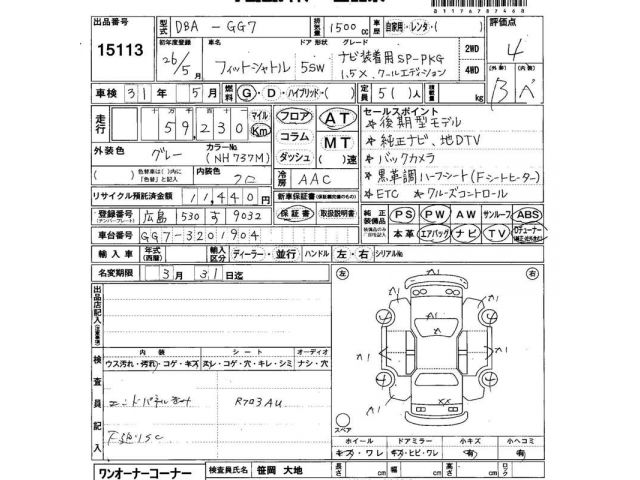 出品番号
15113
型式 DBA-GG7 排気量 1500 cc 車歴 自家用・レンタ・( ) 評価点
4
初年度登録 車名 ドア 形状 グレード
26/5月 フィットシャトル 5 SW ナビ装着用SP-PKG 2WD
1.5X、クールエディション 4WD
(外装) (内装)
B
車検 31年 5月 燃料 G・D・ハイブリッド・( ) 定員 5( )人 積載量 kg
走行 十万 万 千 百 十
59,230 マイル Km
フロア AT
コラム MT
ダッシュ ( )速
外装色 グレー カラーNo (NH737M)
(色替車は( )内に「色替」と記入) 内装色 クロ
冷房 AAC
セールスポイント
★後期型モデル
★純正ナビ、地DTV
★バックカメラ
★黒革調ハーフシート(Fシートヒーター)
★ETC ★クルーズコントロール
リサイクル預託済金額 11,440円 新車保証書(保証継承可能なもの)
登録番号 (ナンバープレート) 広島 530 す 9032 保証書 取扱説明書
純正装備品 PS PW AW サンルーフ ABS
本革 エアバッグ ナビ TV
車台番号 GG7-3201904
輸入車 年式(西暦) 輸入区分 ディーラー・並行 ハンドル 左・右 シリアルNo
名変期限 3月 31日迄
出品店記入
左 右
A1 A1 A1 A1 A1 A1
XX
スペア
検査員記入
内装 シート オーディオ
ウス汚れ・汚れ・コゲ・キズ スレ・コゲ・穴・キレ・シミ ナシ・穴
エンドパネルキズ R703AU
ホイール ドアミラー 小キズ 小ヘコミ
キズ・ワレ キズ・ヒビ・ワレ 有 有
ワンオーナーコーナー 検査員氏名 笹岡 大地 長さ cm 幅 cm 高さ cm